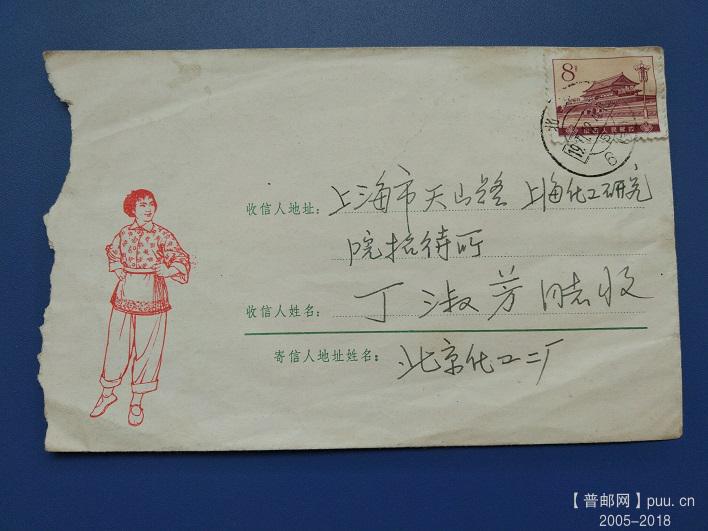 8分
中国人民邮政
收信人地址: 上海市天山路 上海化工研究
院招待所
收信人姓名: 丁淑芳同志收
寄信人地址姓名: 北京化工二厂
【普邮网】puu.cn
2005-2018